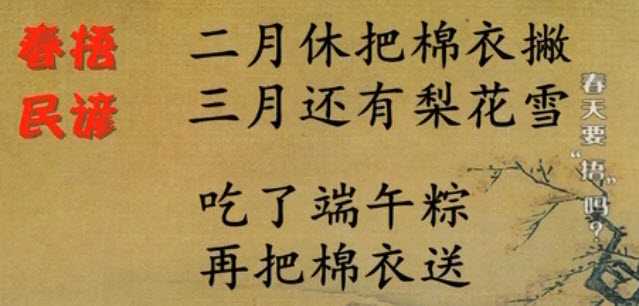 春捂
民谚
二月休把棉衣撇
三月还有梨花雪
吃了端午粽
再把棉衣送
春天要“捂”吗？